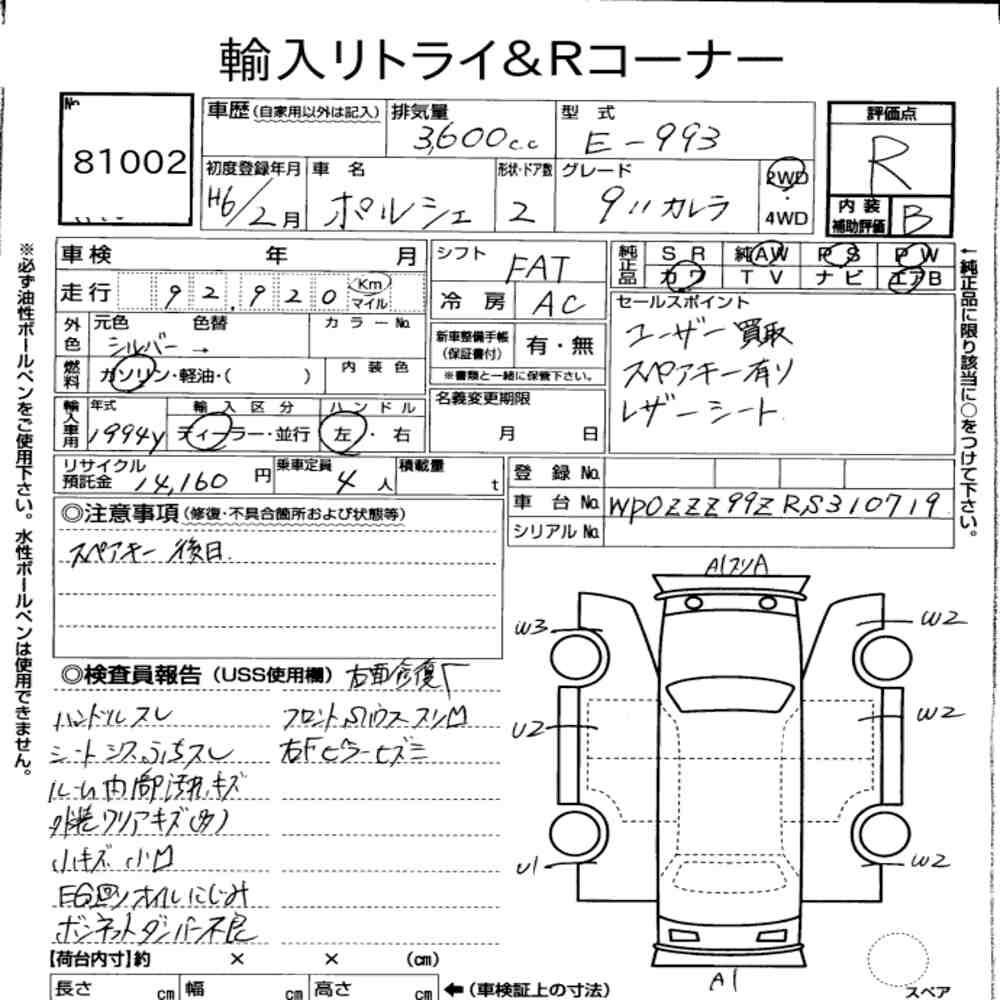 輸入リトライ&Rコーナー
No.
81002
車歴(自家用以外は記入)
排気量
3,600c.c
型 式
E-993
評価点
R
初度登録年月
H6/2月
車 名
ポルシェ
形状・ドア数
2
グレード
911カレラ
2WD
・
4WD
内 装
補助評価
B
車検 年 月
走行 92,920 Km
マイル
シフト
FAT
冷 房
AC
純正品
S R 純AW P S P W
カ ワ T V ナ ビ エアB
セールスポイント
ユーザー買取
スペアキー有り
レザーシート.
外色
元色 色替
シルバー →
カ ラ ー No.
燃料
ガソリン・軽油・( )
内 装 色
新車整備手帳
(保証書付)
有・無
※書類と一緒に保管下さい。
輸入車用
年式
1994y
輸 入 区 分
ディーラー・並行
ハ ン ド ル
左 ・ 右
名義変更期限
月 日
リサイクル
預託金 14,160 円
乗車定員
4 人
積載量
t
登 録 No.
車 台 No. WP0ZZZ99ZRS310719
シリアル No.
◎注意事項(修復・不具合箇所および状態等)
スペアキー 後日.
◎検査員報告(USS使用欄) 右面修復
ハンドルスレ
フロント
シート シワ スレ
右Fピラーヒズミ
ルーム内部汚れ.キズ
外装 クリアキズ(多)
小キズ 小凹
EG廻りオイルにじみ
ボンネットダンパー不良
【荷台内寸】約 × × (cm)
長さ cm 幅 cm 高さ cm
←(車検証上の寸法)
A1スリA
W3
W2
U2
W2
U1
W2
A1
スペア
※必ず油性ボールペンをご使用下さい。水性ボールペンは使用できません。
←純正品に限り該当に○をつけて下さい。